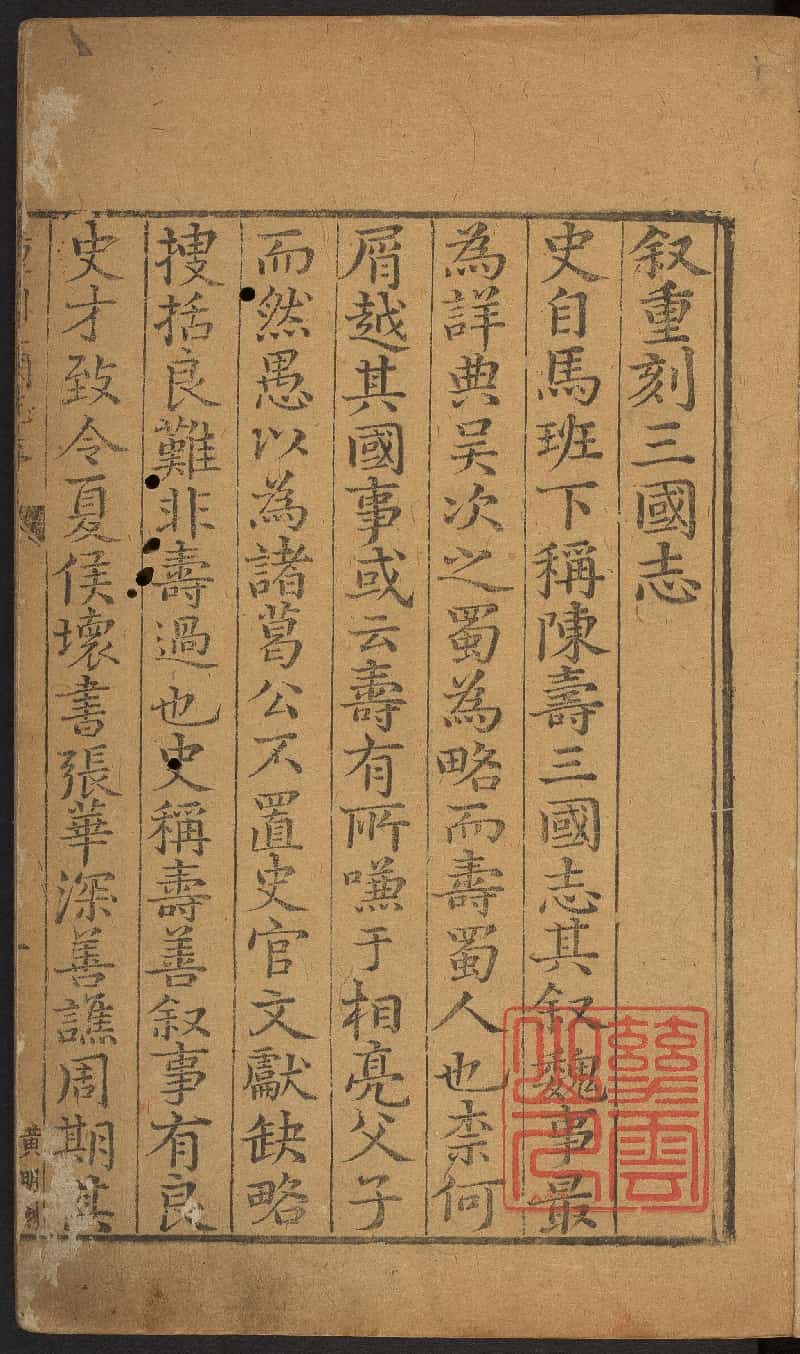 叙重刻三國志
史自馬班下稱陳壽三國志其叙魏事最
為詳典吴次之蜀為略而壽蜀人也柰何
屑越其國事或云壽有所嗛于相亮父子
而然愚以為諸葛公不置史官文獻缺略
搜括良難非壽過也史稱壽善叙事有良
史才致令夏侯壞書張華深善譙周期其
黄明刻